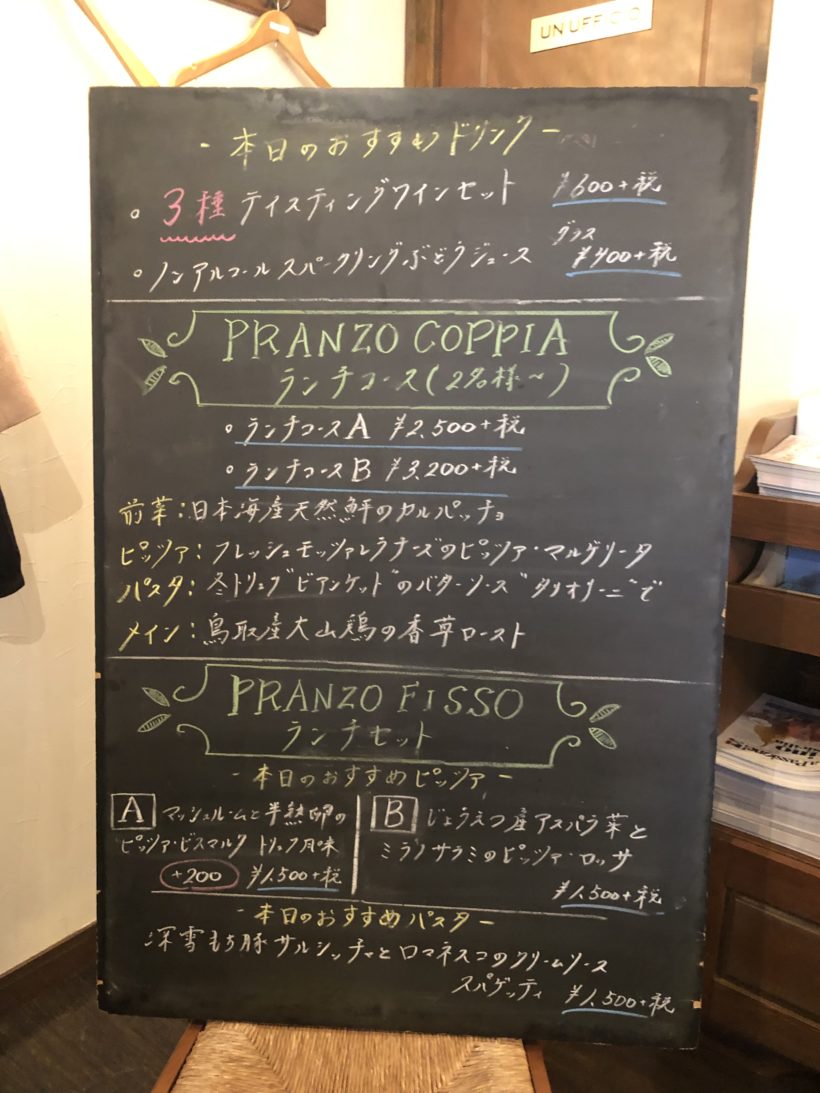 UN UFFICIO
- 本日のおすすめドリンク -
○ 3種 テイスティングワインセット ¥600+税
○ ノンアルコールスパークリングぶどうジュース グラス ¥400+税
PRANZO COPPIA
ランチコース(2名様~)
○ ランチコースA ¥2,500+税
○ ランチコースB ¥3,200+税
前菜:日本海産天然鮮のカルパッチョ
ピッツァ:フレッシュモッツァレラチーズのピッツァ・マルゲリータ
パスタ:冬トリュフ"ビアンケット"のバターソース"タリオリーニ"で
メイン:鳥取産大山鶏の香草ロースト
PRANZO FISSO
ランチセット
- 本日のおすすめピッツァ -
A マッシュルームと半熟卵の
ピッツァ・ビスマルク トリュフ風味
+200 ¥1,500+税
B じょうえつ産アスパラ菜と
ミラノサラミのピッツァ・ロッサ
¥1,500+税
- 本日のおすすめパスタ -
深雪もち豚サルシッチャとロマネスコのクリームソース
スパゲッティ ¥1,500+税